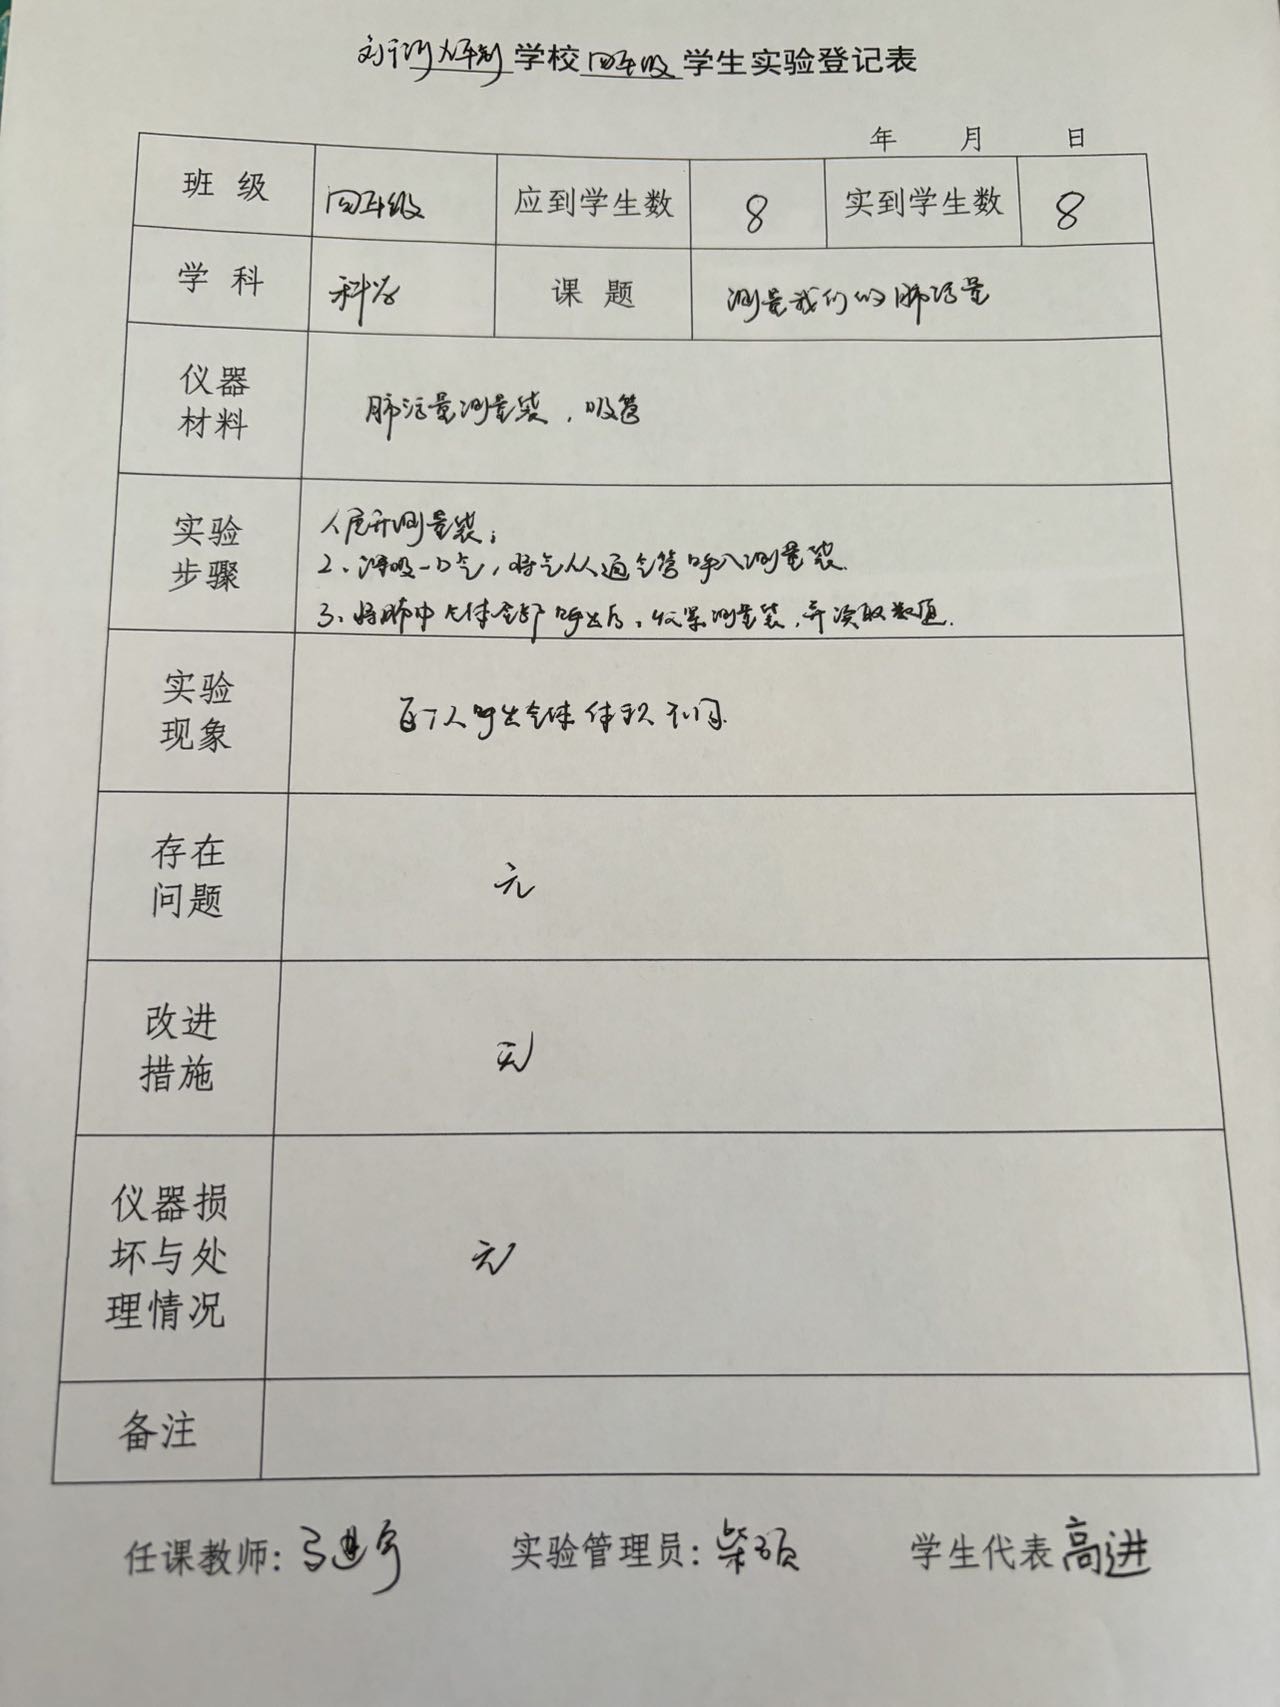 学校四年级学生实验登记表
年 月 日
班 级 四年级 应到学生数 8 实到学生数 8
学 科 科学 课 题 测量我们的肺活量
仪器
材料
肺活量测量袋，吸管
实验
步骤
1、展开测量袋；
2、深吸一口气，将气从通气管呼入测量袋.
3、将肺中气体全部呼出后，收紧测量袋，并读取数值.
实验
现象
每个人呼出气体体积不同.
存在
问题
无
改进
措施
无
仪器损
坏与处
理情况
无
备注
任课教师： 实验管理员：柴硕 学生代表 高进